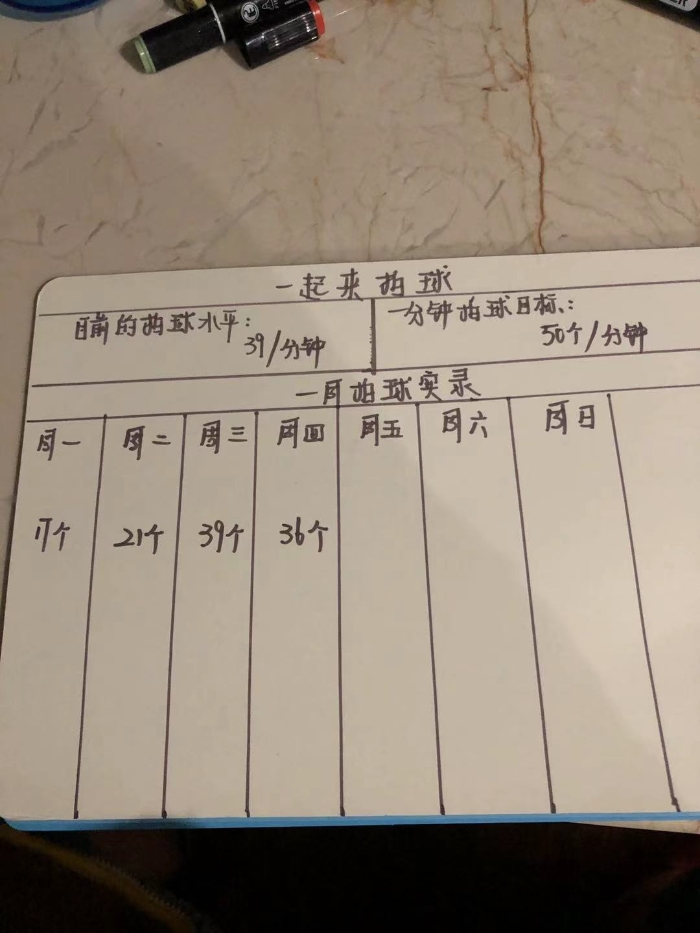 一起来拍球
目前的拍球水平:
39/分钟
一分钟拍球目标:
50个/分钟
一周拍球实录
周一 周二 周三 周四 周五 周六 周日
17个 21个 39个 36个